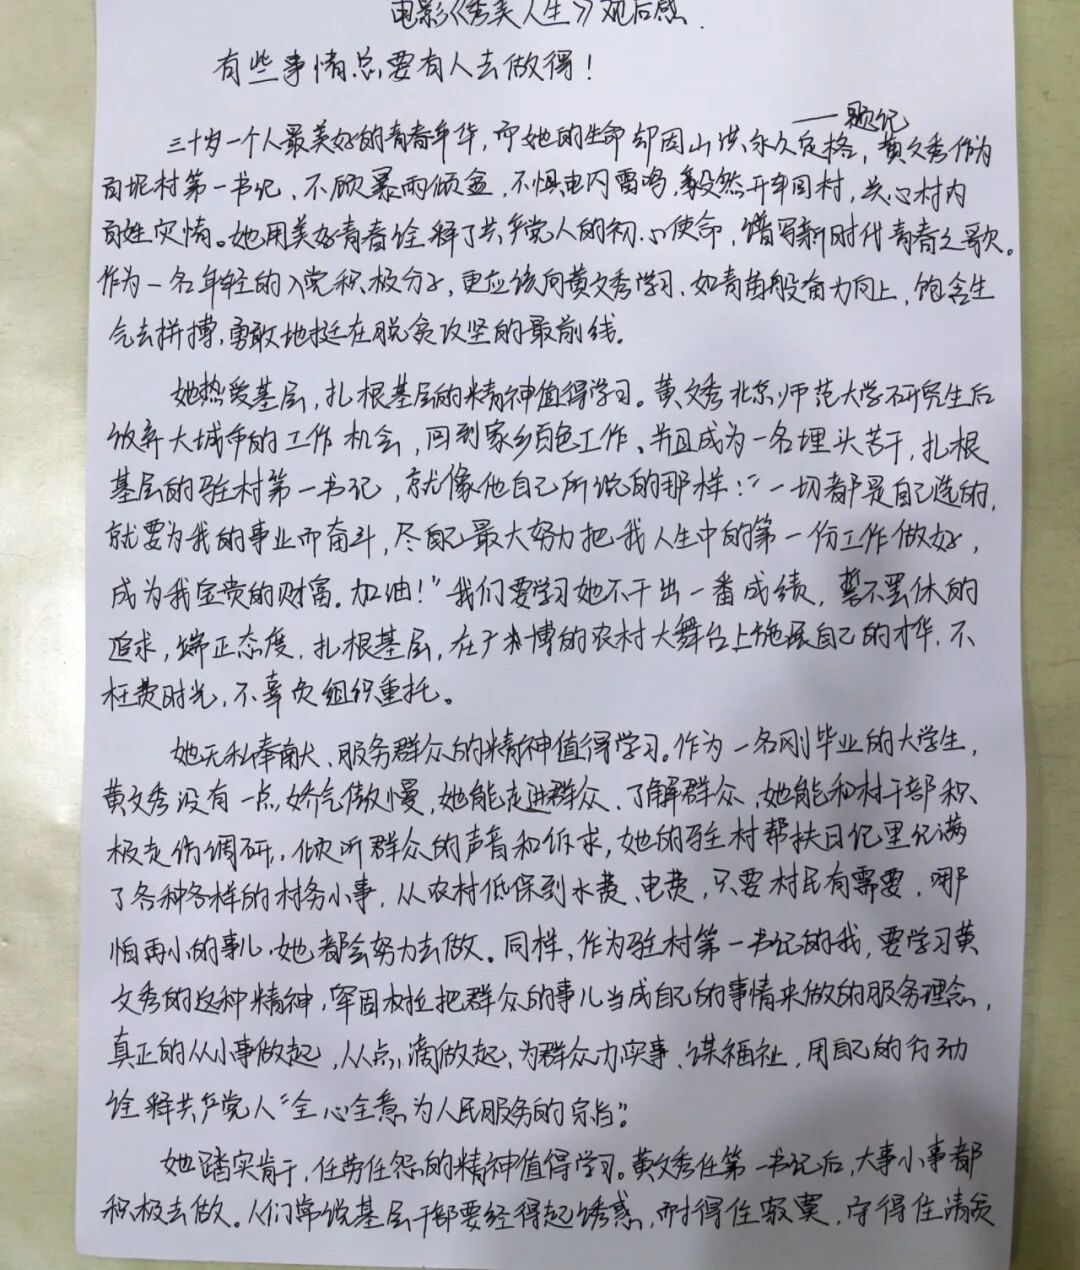 电影《秀美人生》观后感
有些事情总要有人去做得！
——题记
三十岁一个人最美好的青春年华，而她的生命却因山洪永久定格，黄文秀作为
百坭村第一书记，不顾暴雨倾盆，不惧电闪雷鸣，毅然开车回村，关心村内
百姓灾情。她用美好青春诠释了共产党人的初心使命，谱写新时代青春之歌。
作为一名年轻的入党积极分子，更应该向黄文秀学习，如青苗般奋力向上，饱含生
气去拼搏，勇敢地挺在脱贫攻坚的最前线。
她热爱基层，扎根基层的精神值得学习。黄文秀北京师范大学研究生后
放弃大城市的工作机会，回到家乡百色工作、并且成为一名埋头苦干，扎根
基层的驻村第一书记，就像他自己所说的那样：“一切都是自己选的，
就要为我的事业而奋斗，尽自己最大努力把我人生中的第一份工作做好，
成为我宝贵的财富。加油！”我们要学习她不干出一番成绩，誓不罢休的
追求，端正态度，扎根基层，在广博的农村大舞台上施展自己的才华，不
枉费时光，不辜负组织重托。
她无私奉献、服务群众的精神值得学习。作为一名刚毕业的大学生，
黄文秀没有一点娇气傲慢，她能走进群众、了解群众，她能和村干部积
极走访调研，倾听群众的声音和诉求，她的驻村帮扶日记里记满
了各种各样的村务小事，从农村低保到水费、电费，只要村民有需要，哪
怕再小的事儿，她都会努力去做。同样，作为驻村第一书记的我，要学习黄
文秀的这种精神，牢固树立把群众的事儿当成自己的事情来做的服务理念，
真正的从小事做起，从点滴做起，为群众办实事、谋福祉，用自己的行动
诠释共产党人“全心全意为人民服务的宗旨”。
她踏实肯干，任劳任怨的精神值得学习。黄文秀任第一书记后，大事小事都
积极去做。人们常说基层干部要经得起诱惑，耐得住寂寞，守得住清贫